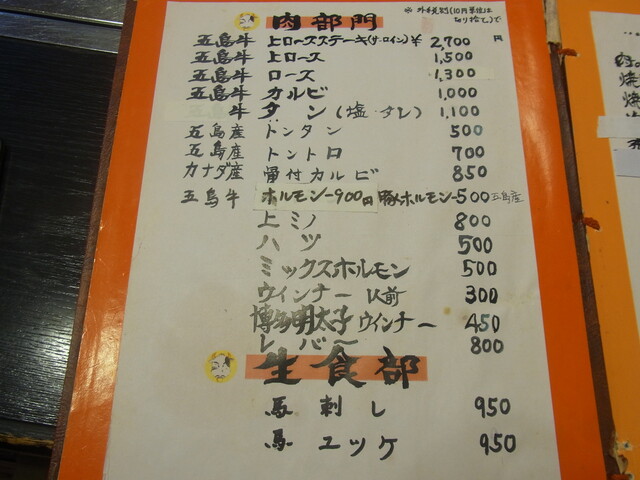 肉部門
※外税別(10円単位は
切り捨て)で
五島牛 上ロースステーキ(サーロイン)¥ 2,700 円
五島牛 上ロース 1,500
五島牛 ロース 1,300
五島牛 カルビ 1,000
牛 タン(塩・タレ) 1,100
五島産 トンタン 500
五島産 トントロ 700
カナダ産 骨付カルビ 850
五島牛 ホルモン-900円 豚ホルモン-500 五島産
上ミノ 800
ハツ 500
ミックスホルモン 500
ウインナー 1人前 300
博多明太子ウインナー 450
レバー 800
生食部
馬刺し 950
馬ユッケ 950
焼
焼